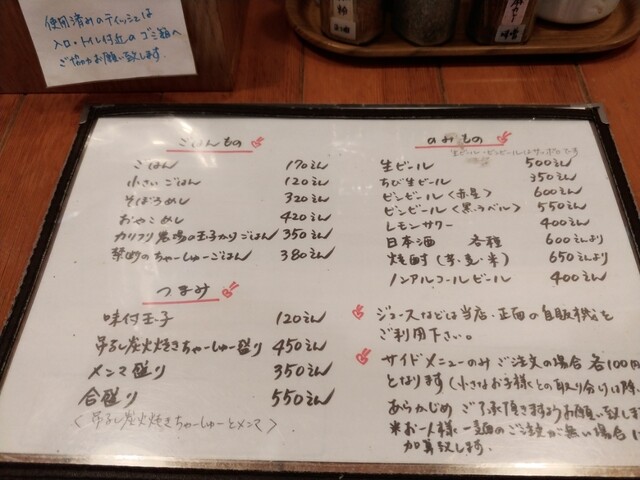 使用済みのティッシュは
入口・トイレ付近のゴミ箱へ
ご協力お願い致します。
ごはんもの
ごはん 170えん
小さいごはん 120えん
そぼろめし 320えん
おやこめし 420えん
カリフリ農場の玉子かけごはん 350えん
禁断のちゃーしゅーごはん 380えん
つまみ
味付玉子 120えん
吊るし炭火焼きちゃーしゅー盛り 450えん
メンマ盛り 350えん
合盛り 550えん
<吊るし炭火焼きちゃーしゅーとメンマ>
のみもの
生ビール 500えん
ちび生ビール 350えん
ビンビール<赤星> 600えん
ビンビール<黒ラベル> 550えん
レモンサワー 400えん
日本酒 各種 600えんより
焼酎 (芋・麦・米) 650えんより
ノンアルコールビール 400えん
ジュースなどは当店・正面の自販機を
ご利用下さい。
サイドメニューのみご注文の場合 各100円
となります(小さなお子様との取り分けは除
あらかじめ ご了承頂きますようお願い致しま
※お一人様一麺のご注文が無い場合に
加算致します。